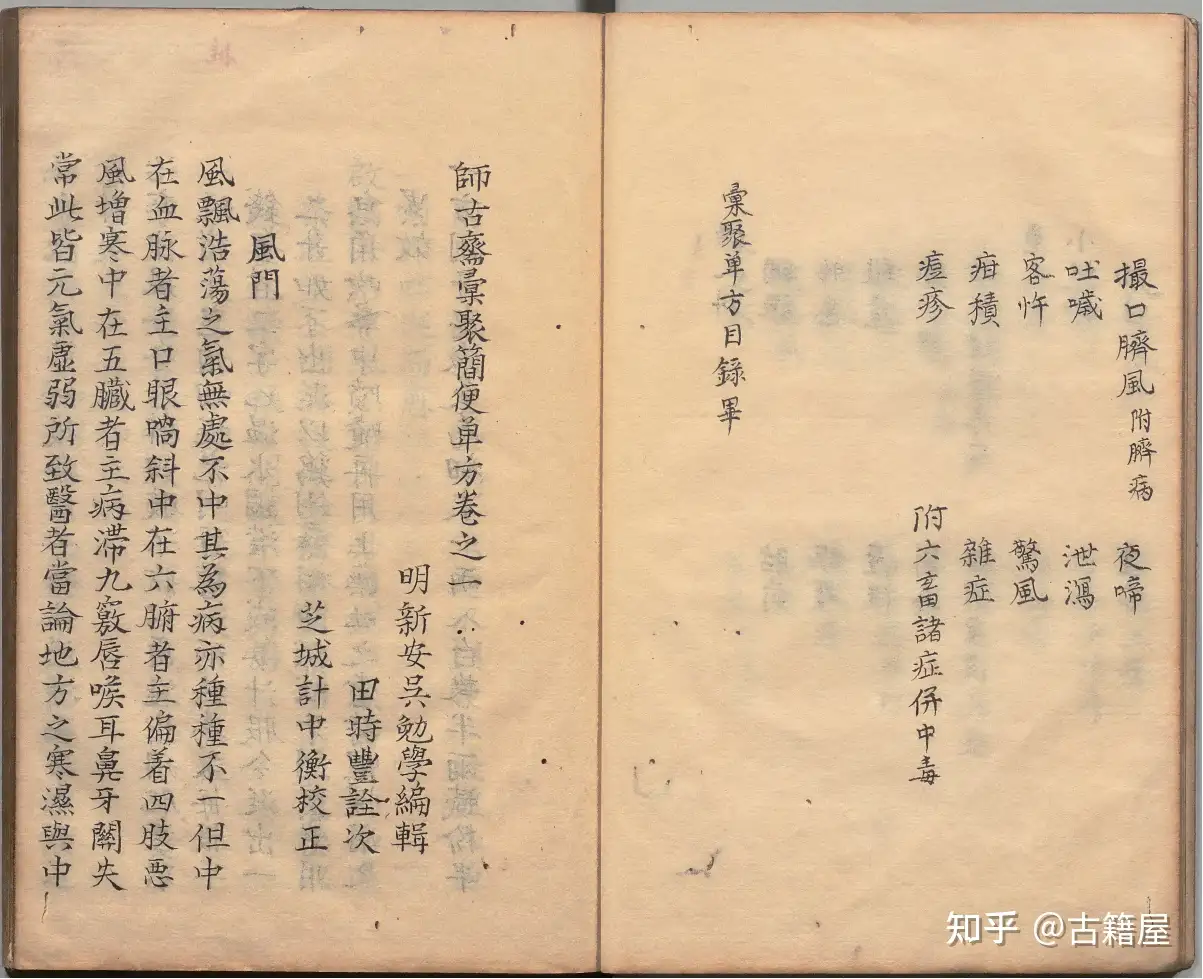 撮口臍風附臍病
夜啼
吐噦
泄瀉
客忤
驚風
疳積
雜症
痘疹
附六畜諸症併中毒
彙聚单方目錄畢
師古齋彙聚簡便单方卷之一
明新安吳勉學編輯
田時豐詮次
芝城計中衡校正
風門
風飄浩蕩之氣無處不中其為病亦種種不一但中
在血脉者主口眼喎斜中在六腑者主偏着四肢惡
風增寒中在五臟者主病滞九竅唇㗋耳鼻牙關失
常此皆元氣虛弱所致醫者當論地方之寒濕與中
知乎 @古籍屋